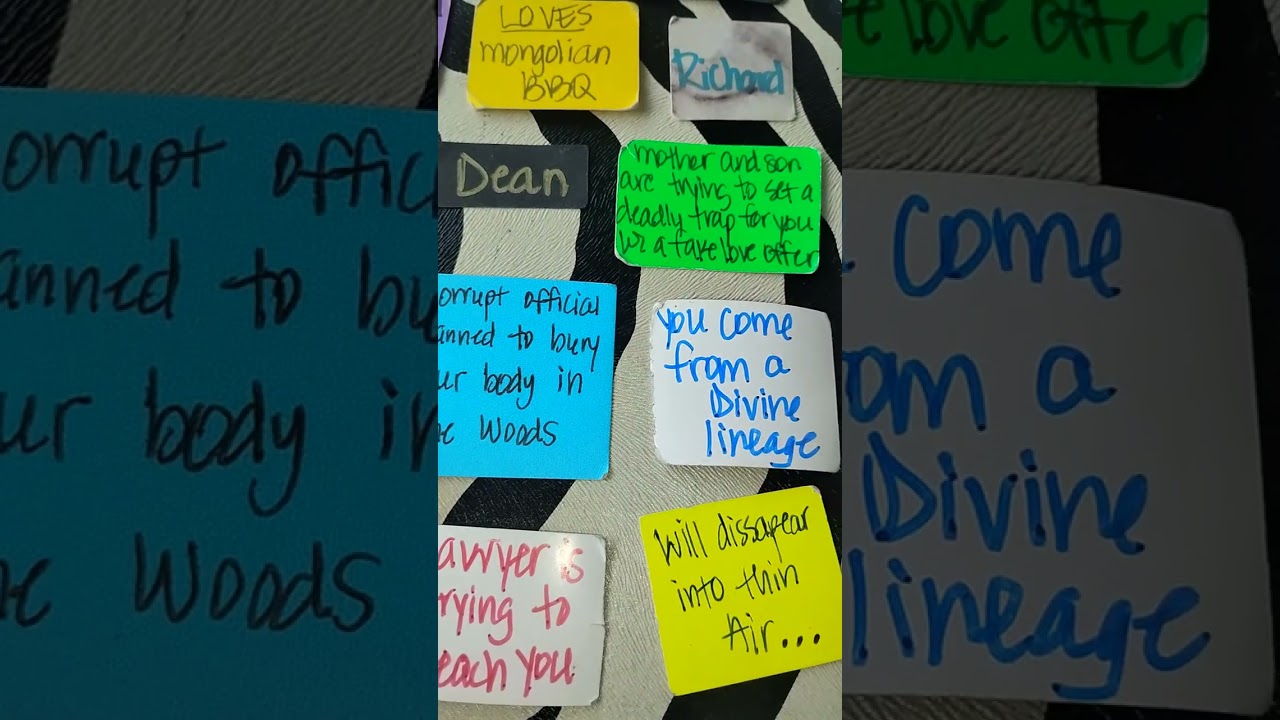 LOVES
mongolian
BBQ
Richard
Dean
mother and son
are trying to set a
deadly trap for you
w a fake love offer
orrupt official
anned to bury
ur body in
Woods
you come
from a
Divine
lineage
awyer is
rying to
each you
Will dissapear
into thin
Air...
e love offer
orrupt offic
anned to bu
ur body in
Woods
come
om a
Divine
lineage